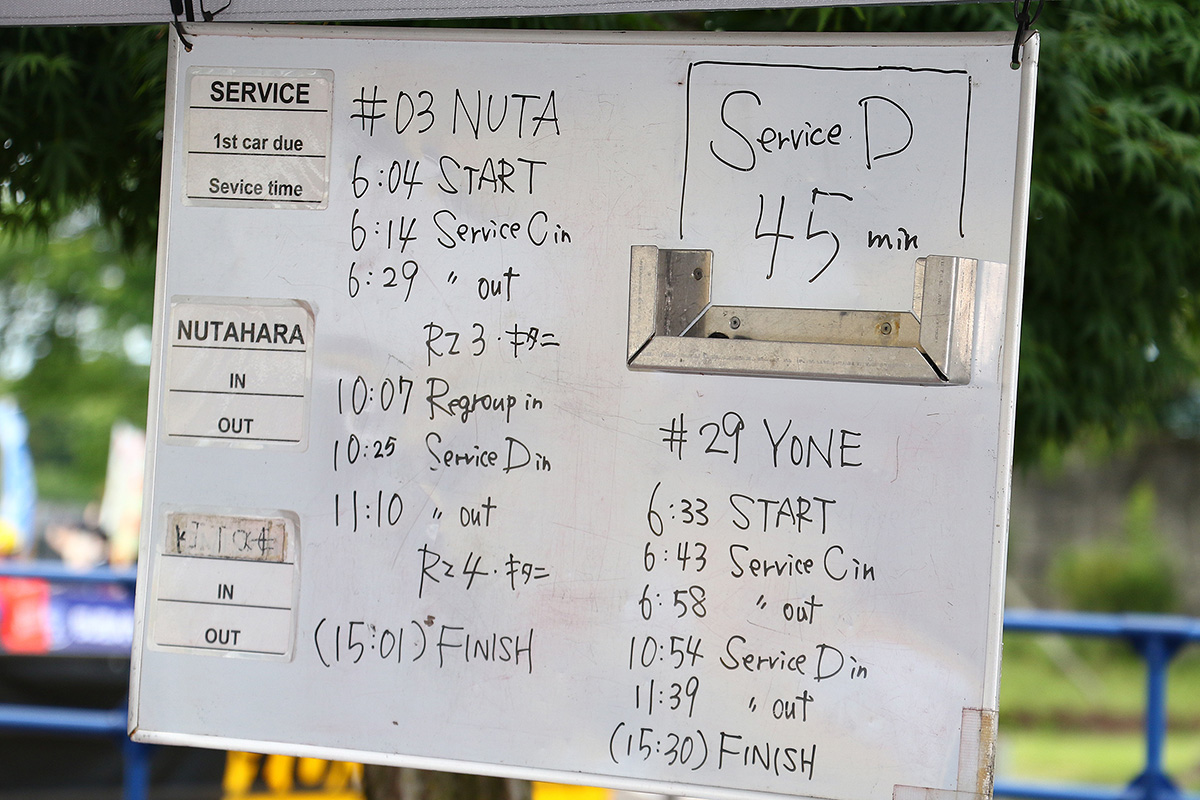 SERVICE
1st car due
Sevice time
NUTAHARA
IN
OUT
IN
OUT
#03 NUTA
6:04 START
6:14 Service C in
6:29 〃 out
Rz 3・キター
10:07 Regroup in
10:25 Service D in
11:10 〃 out
Rz 4・キター
(15:01) FINISH
Service D
45 min
#29 YONE
6:33 START
6:43 Service C in
6:58 〃 out
10:54 Service D in
11:39 〃 out
(15:30) FINISH